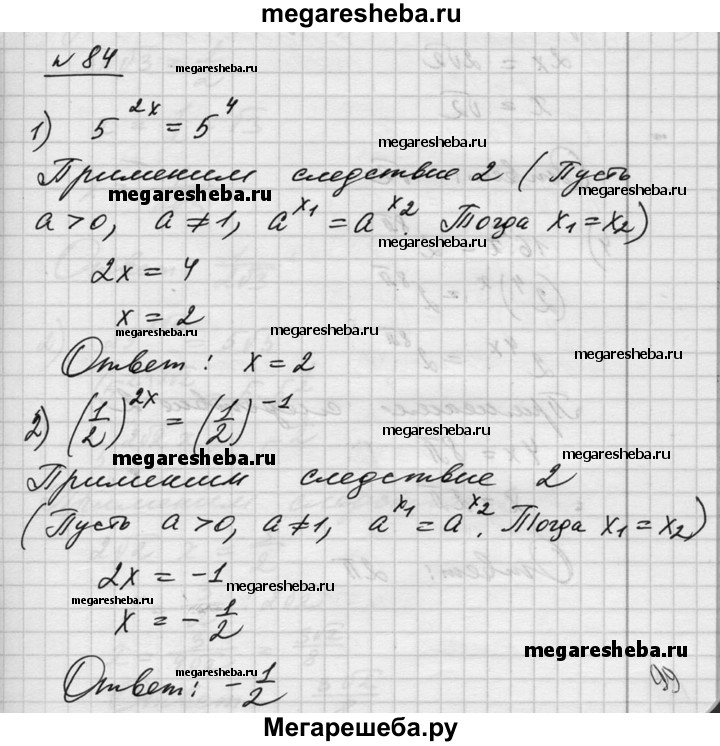 megaresheba.ru
№ 84 megaresheba.ru
1) 5^{2x} = 5^4
megaresheba.ru
Применим следствие 2 (Пусть
megaresheba.ru megaresheba.ru
a > 0, a ≠ 1, a^{x_1} = a^{x_2}. Тогда x_1 = x_2)
megaresheba.ru
2x = 4
x = 2
megaresheba.ru megaresheba.ru
megaresheba.ru
Ответ: x = 2
2) (1/2)^{2x} = (1/2)^{-1}
megaresheba.ru
megaresheba.ru
Применим следствие 2
megaresheba.ru
(Пусть a > 0, a ≠ 1, a^{x_1} = a^{x_2}. Тогда x_1 = x_2)
megaresheba.ru
2x = -1 megaresheba.ru
megaresheba.ru
x = - 1/2
megaresheba.ru
megaresheba.ru
Ответ: - 1/2
99
Мегарешеба.ру